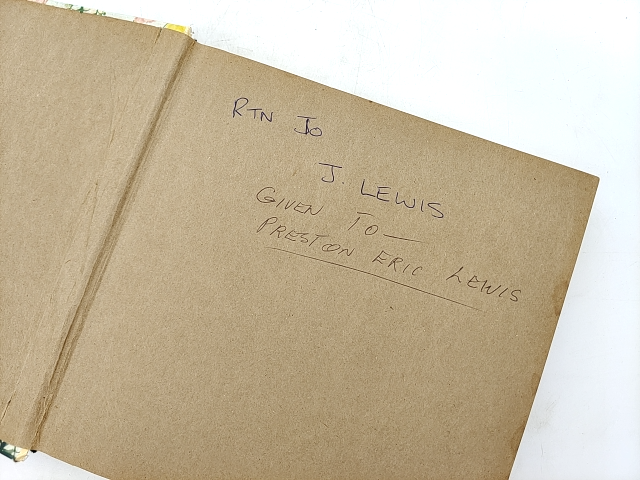 RTN TO
J. LEWIS
GIVEN TO—
PRESTON ERIC LEWIS